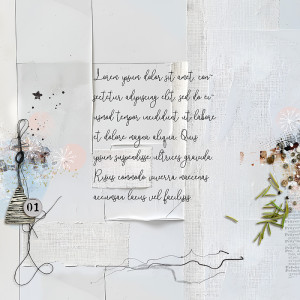 Lorem ipsum dolor sit amet, con-
sectetur adipiscing elit, sed do ei-
usmod tempor incididunt ut labore
et dolore magna aliqua. Quis
ipsum suspendisse ultrices gravida.
Risus commodo viverra maecenas
accumsan lacus vel facilisis.
01